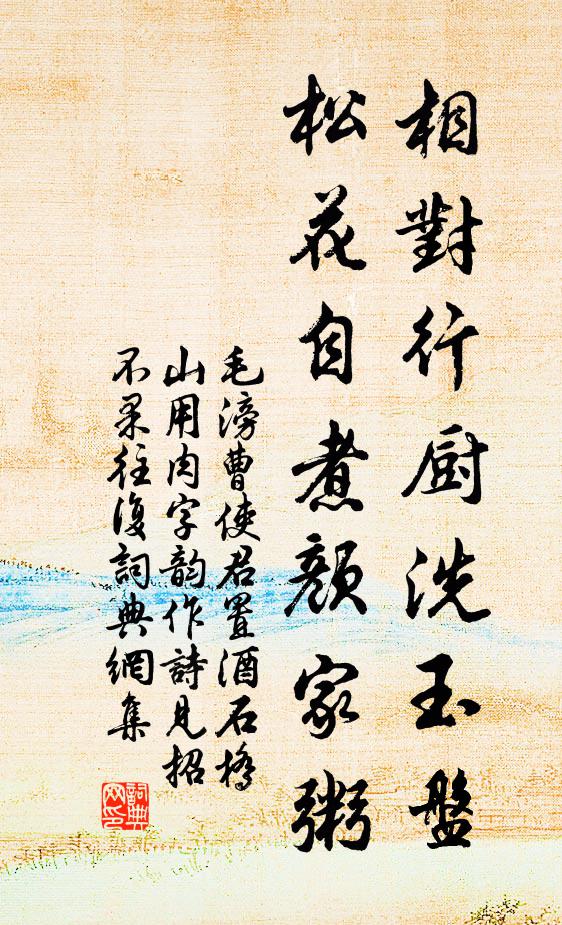 相對行厨洗玉盤
松花自煮顏家粥
毛滂曹使君置酒石橋
山用肉字韵作詩見招
不果往復詞典網集
詞典網印